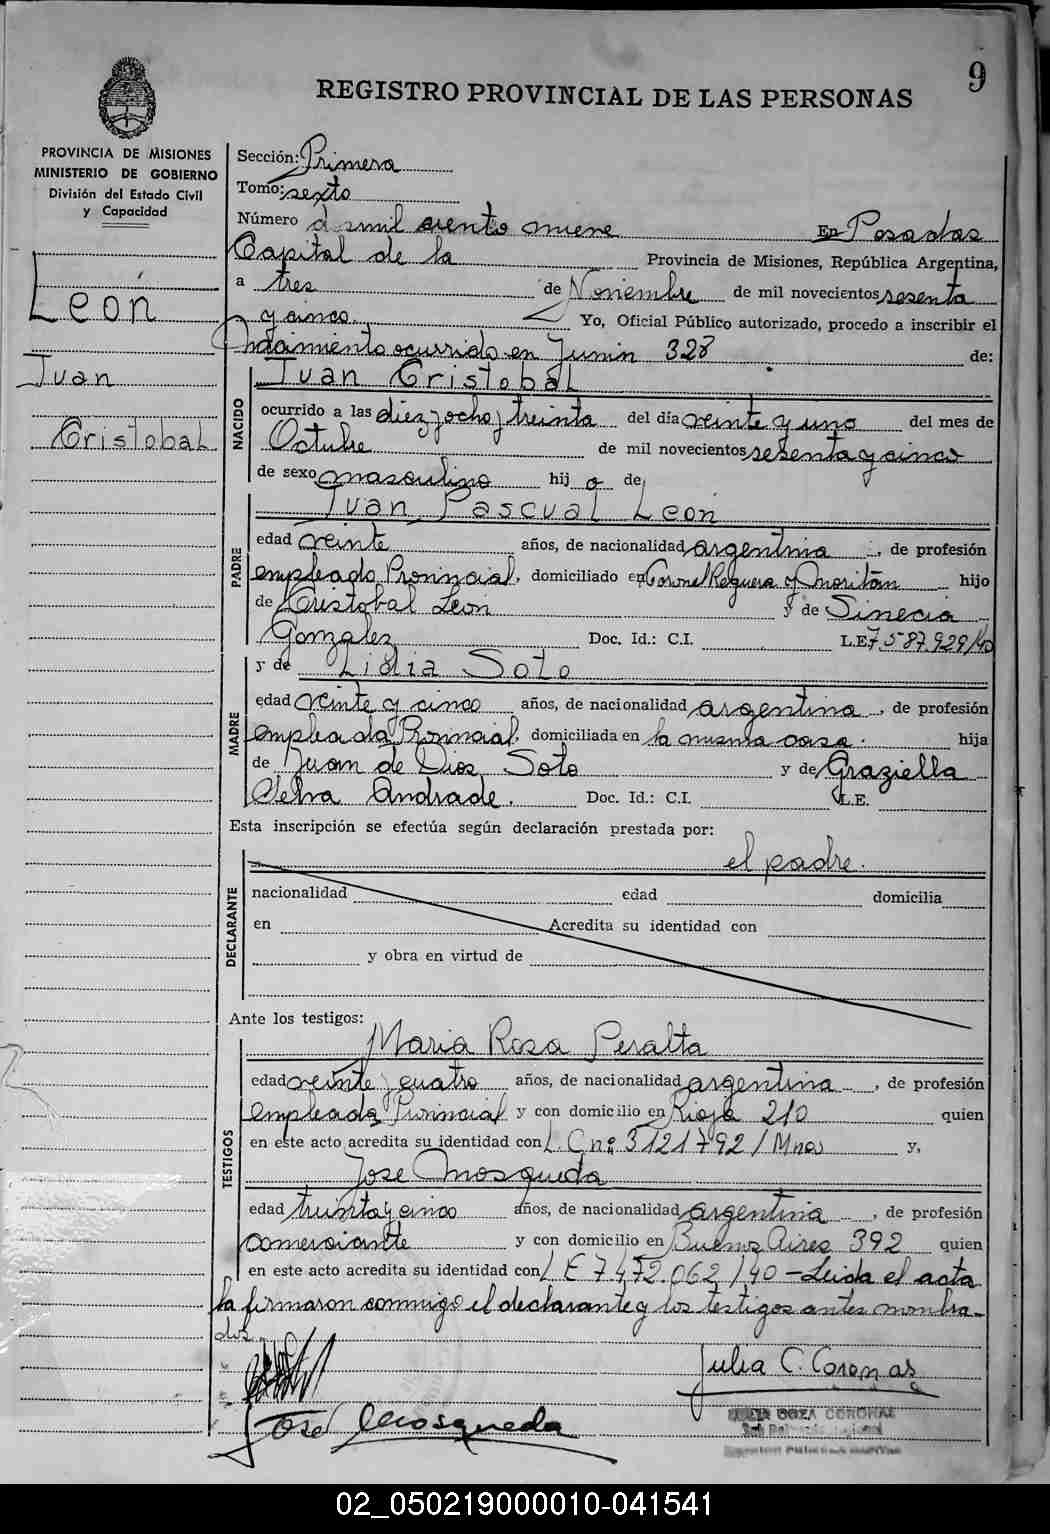 9
REGISTRO PROVINCIAL DE LAS PERSONAS
PROVINCIA DE MISIONES
MINISTERIO DE GOBIERNO
División del Estado Civil
y Capacidad
León
Juan
Cristobal
Sección: Primera
Tomo: sexto
Número dosmil ciento nueve En Posadas
Capital de la Provincia de Misiones, República Argentina,
a tres de Noviembre de mil novecientos sesenta
y cinco. Yo, Oficial Público autorizado, procedo a inscribir el
nacimiento ocurrido en Junin 328 de:
NACIDO
Juan Cristobal
ocurrido a las diez y ocho y treinta del día veinte y uno del mes de
Octubre de mil novecientos sesenta y cinco
de sexo masculino hij o de
Juan Pascual Leon
PADRE
edad veinte años, de nacionalidad argentina, de profesión
empleado Provincial, domiciliado en Coronel Reguera y Moritán hijo
de Cristobal León y de Sinecia
Gonzalez Doc. Id.: C.I. L.E. 7587.929/40
y de Lidia Soto
MADRE
edad veinte y cinco años, de nacionalidad argentina, de profesión
empleada Provincial, domiciliada en la misma casa. hija
de Juan de Dios Soto y de Graziella
Selva Andrade. Doc. Id.: C.I. L.E.
Esta inscripción se efectúa según declaración prestada por:
el padre.
DECLARANTE
nacionalidad edad domicilia
en Acredita su identidad con
y obra en virtud de
Ante los testigos:
Maria Rosa Peralta
TESTIGOS
edad veinte y cuatro años, de nacionalidad argentina, de profesión
empleada Provincial y con domicilio en Rioja 210 quien
en este acto acredita su identidad con L.C. nº 3121792/Mnes y,
Jose Mosqueda
edad treinta y cinco años, de nacionalidad argentina, de profesión
comerciante y con domicilio en Buenos Aires 392 quien
en este acto acredita su identidad con L E 7.472.062/40 - Leida el acta
la firmaron conmigo el declarante y los testigos antes nombra-
dos.
Julia C. Coronas
José Mosqueda
02_050219000010-041541